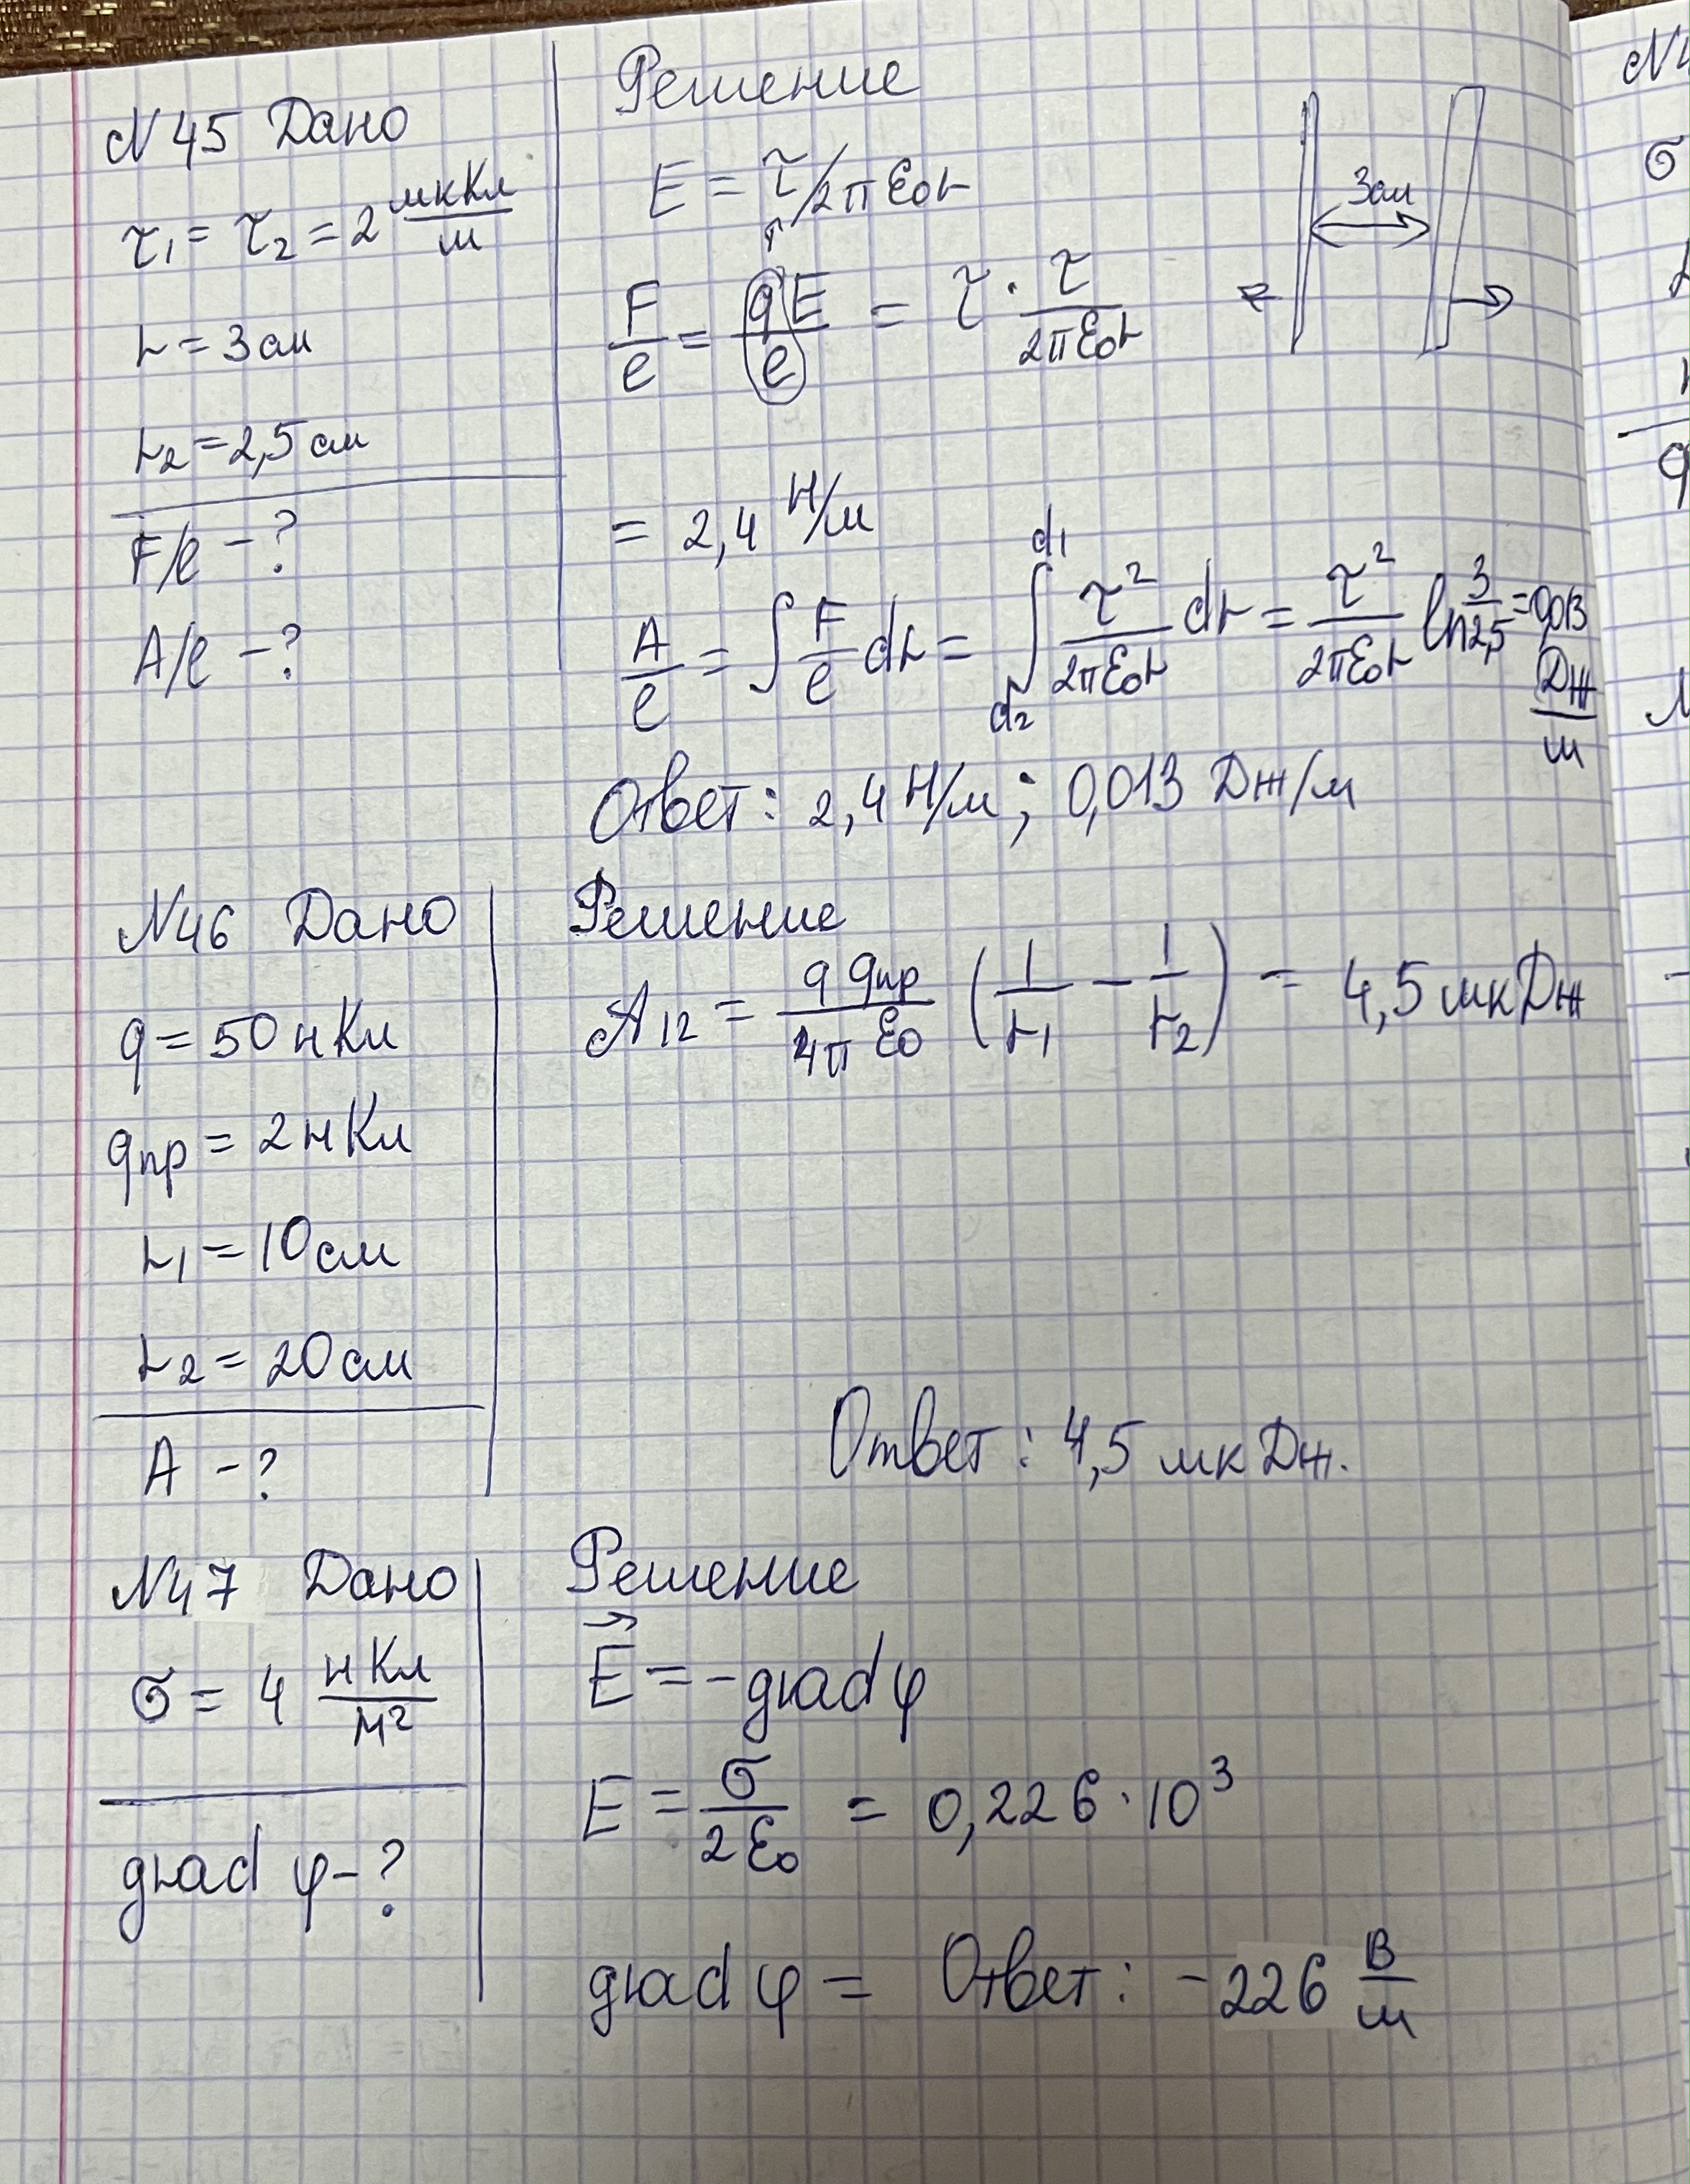 N 45 Дано
τ₁ = τ₂ = 2 мкКл/м
r = 3 см
r₂ = 2,5 см
F/ℓ - ?
A/ℓ - ?
Решение
E = τ/2πε₀r
F/ℓ = qE/ℓ = τ · τ/2πε₀r
3см
= 2,4 Н/м
A/ℓ = ∫ F/ℓ dr = ∫ d₂ d₁ τ²/2πε₀r dr = τ²/2πε₀r ln 3/2,5 = 0,013 Дж/м
Ответ: 2,4 Н/м; 0,013 Дж/м
N46 Дано
q = 50 нКл
qпр = 2 нКл
r₁ = 10 см
r₂ = 20 см
A - ?
Решение
A₁₂ = q qпр/4π ε₀ (1/r₁ - 1/r₂) = 4,5 мкДж
Ответ: 4,5 мкДж.
N47 Дано
σ = 4 нКл/м²
grad φ - ?
Решение
E⃗ = -grad φ
E = σ/2ε₀ = 0,226 · 10³
grad φ = Ответ: -226 В/м